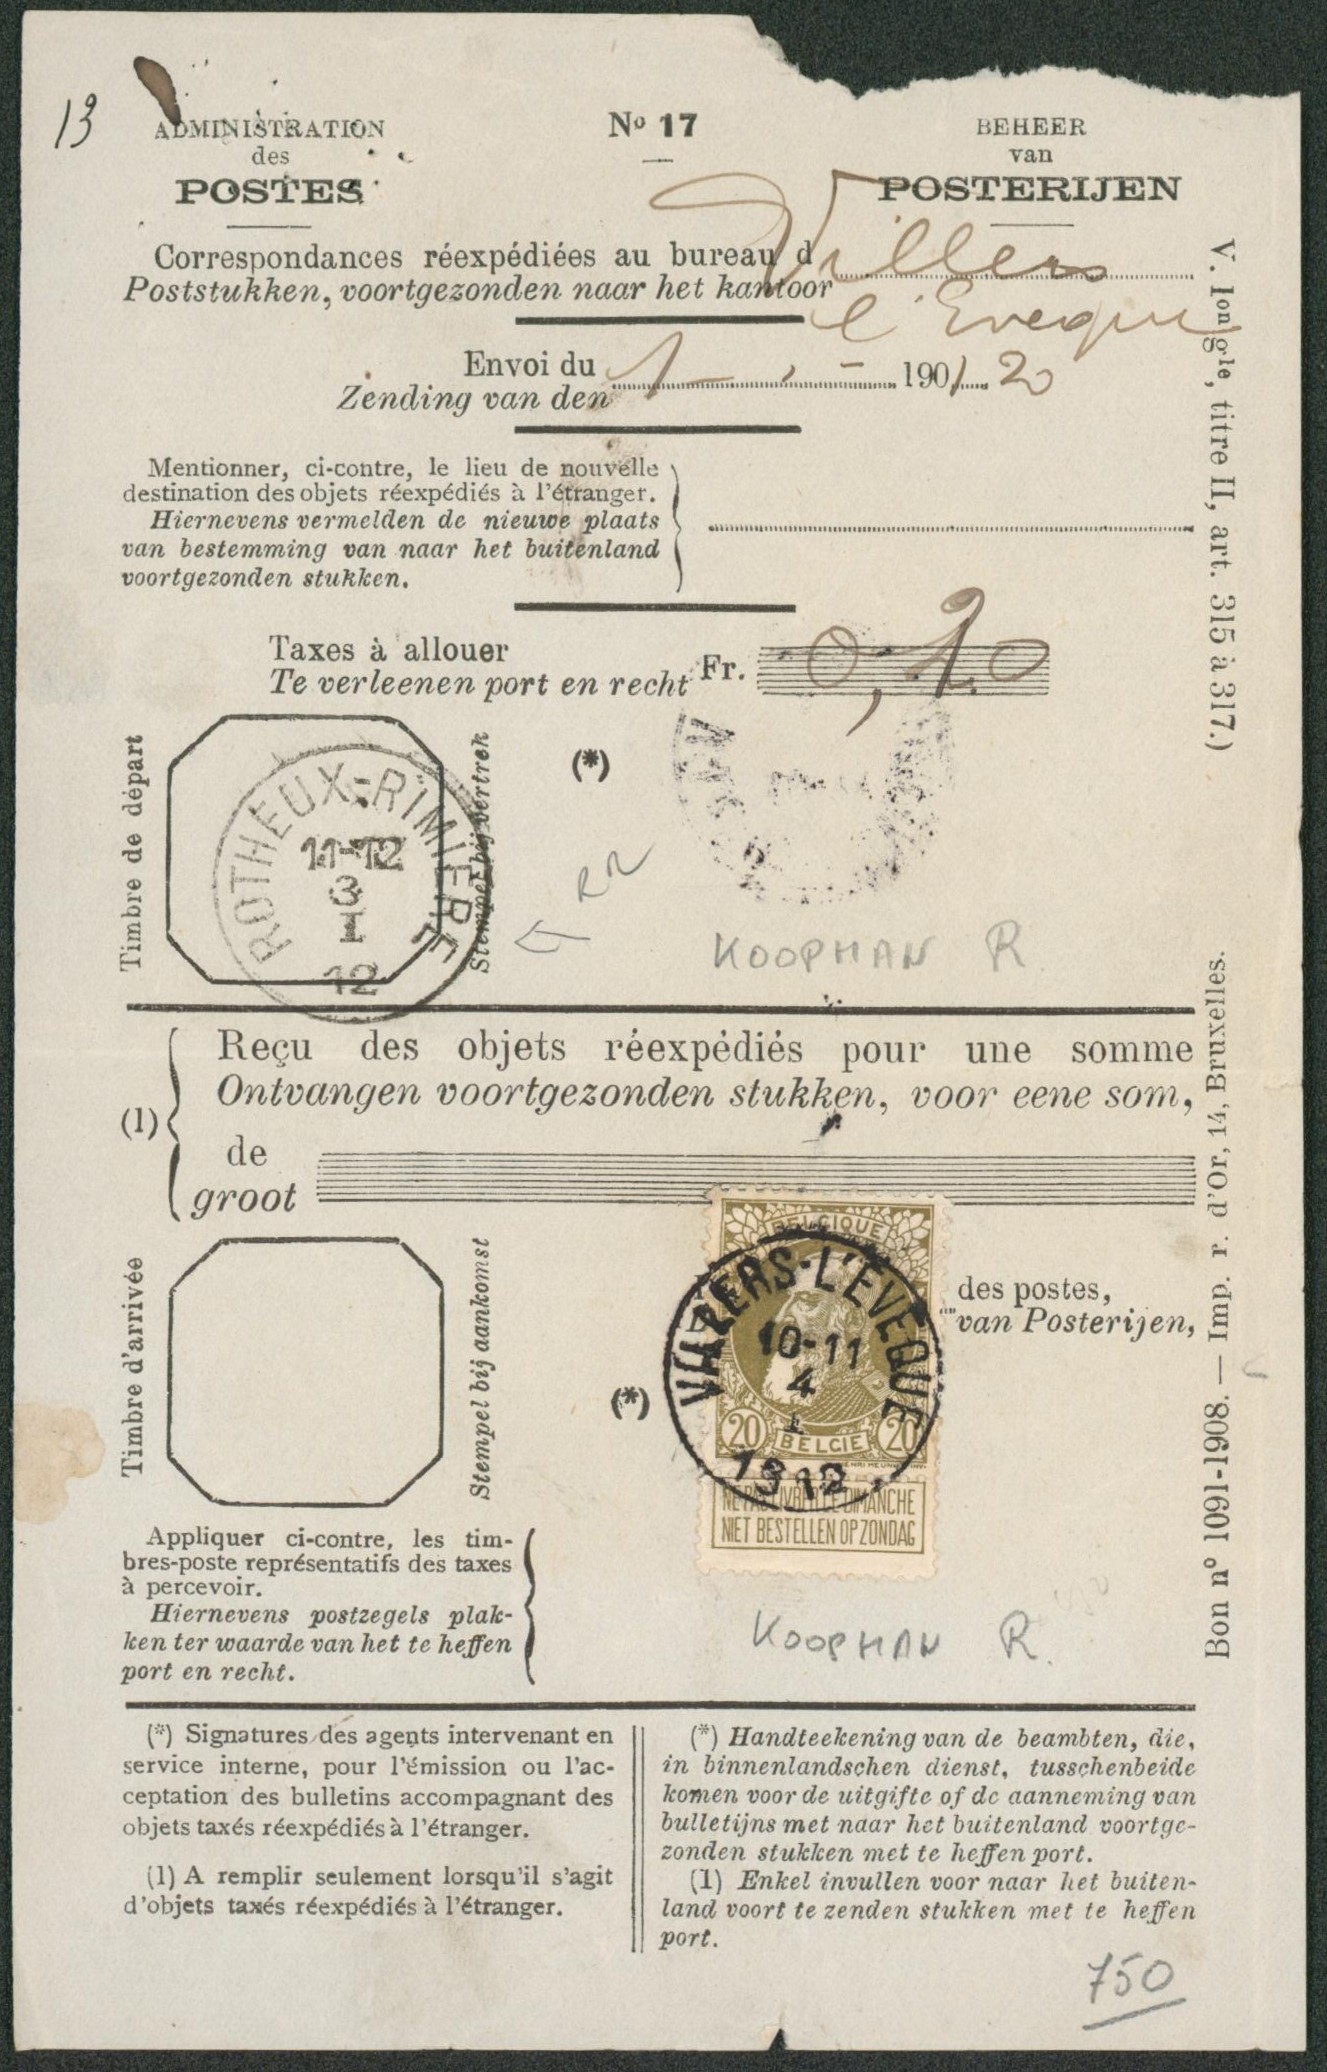 13
ADMINISTRATION
des
POSTES
Nº 17
BEHEER
van
POSTERIJEN
Correspondances réexpédiées au bureau d Villers
Poststukken, voortgezonden naar het kantoor l'Eveque
Envoi du 1 - - 190
Zending van den
Mentionner, ci-contre, le lieu de nouvelle
destination des objets réexpédiés à l'étranger.
Hiernevens vermelden de nieuwe plaats
van bestemming van naar het buitenland
voortgezonden stukken.
Taxes à allouer
Te verleenen port en recht
Fr. 0,20
Timbre de départ
ROTHEUX-RIMIERE
11-12
3
I
12
Stempel bij vertrek
(*)
RR
KOOPMAN R
(1)
Reçu des objets réexpédiés pour une somme
Ontvangen voortgezonden stukken, voor eene som,
de
groot
Timbre d'arrivée
Stempel bij aankomst
(*)
BELGIQUE
VILLERS-L'EVEQUE
10-11
4
I
1912
20 BELGIE 20
NE PAS LIVRER LE DIMANCHE
NIET BESTELLEN OP ZONDAG
des postes,
van Posterijen,
Appliquer ci-contre, les tim-
bres-poste représentatifs des taxes
à percevoir.
Hiernevens postzegels plak-
ken ter waarde van het te heffen
port en recht.
KOOPMAN R.
(*) Signatures des agents intervenant en
service interne, pour l'émission ou l'ac-
ceptation des bulletins accompagnant des
objets taxés réexpédiés à l'étranger.
(1) A remplir seulement lorsqu'il s'agit
d'objets taxés réexpédiés à l'étranger.
(*) Handteekening van de beambten, die,
in binnenlandschen dienst, tusschenbeide
komen voor de uitgifte of de aanneming van
bulletijns met naar het buitenland voortge-
zonden stukken met te heffen port.
(1) Enkel invullen voor naar het buiten-
land voort te zenden stukken met te heffen
port.
750
V. Ion gle, titre II, art. 315 à 317.)
Bon nº 1091-1908. — Imp. r. d'Or, 14, Bruxelles.